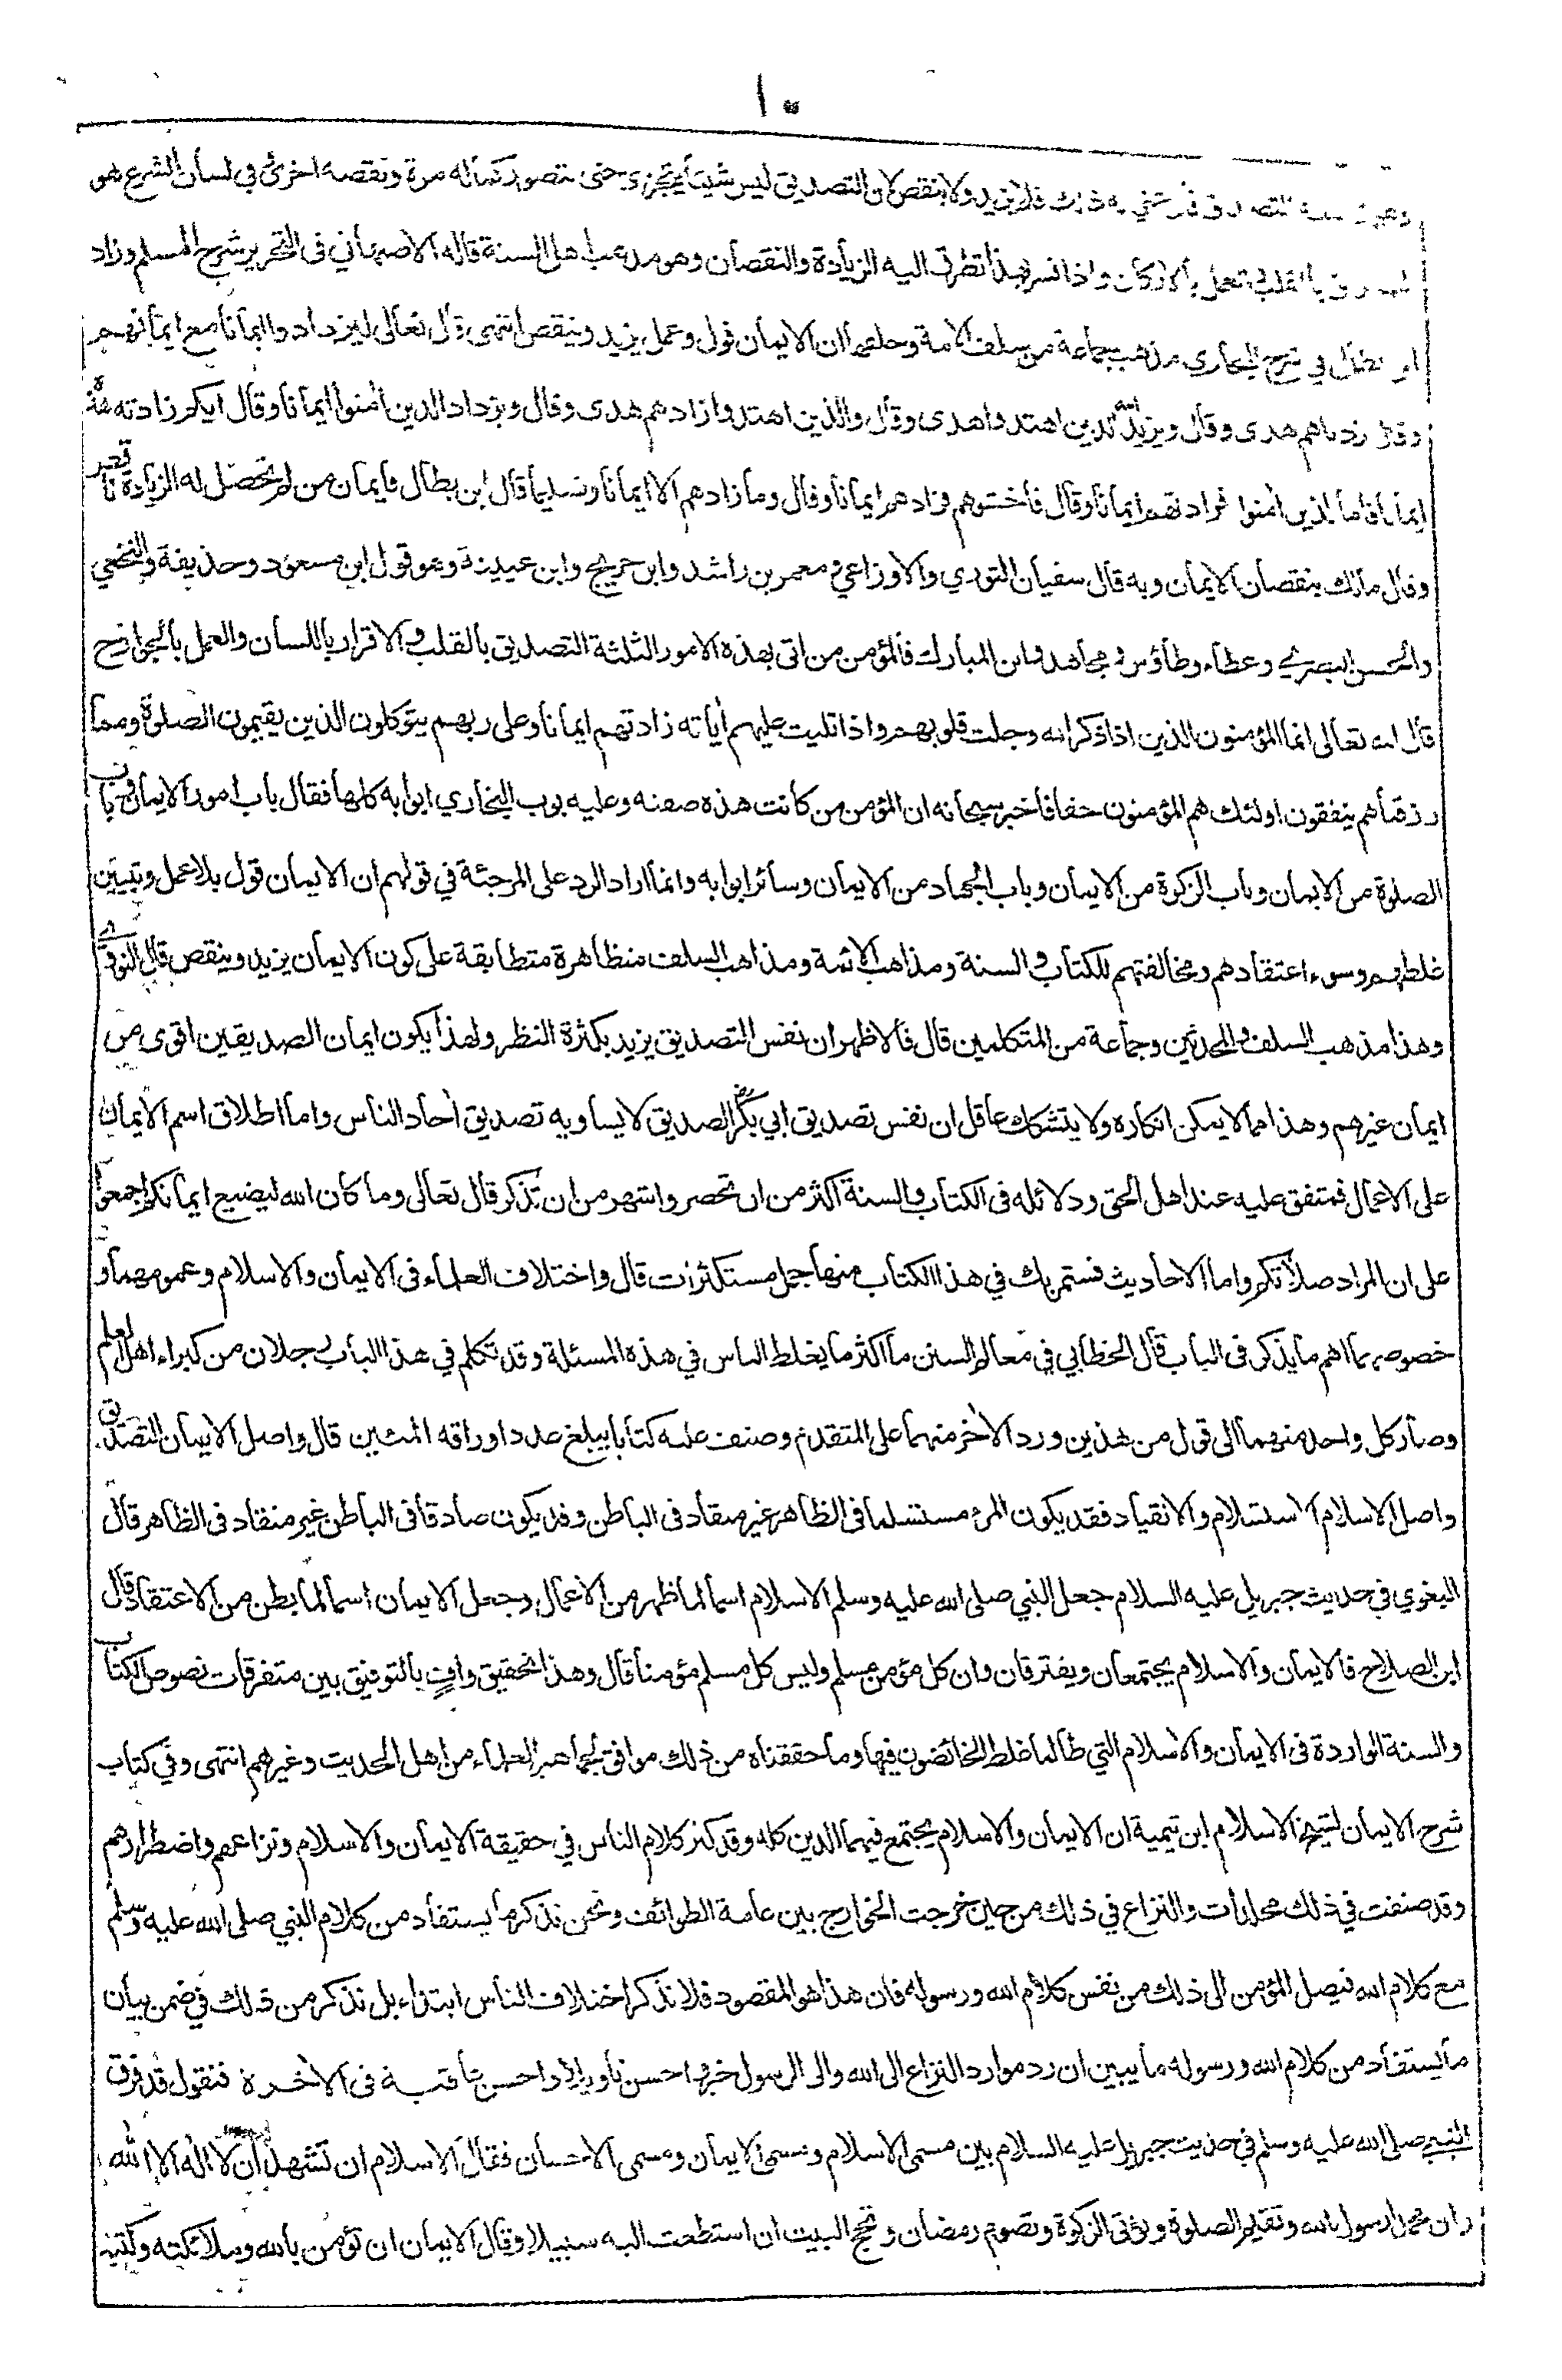 ١٠
فلا يزيد ولا ينقص لان التصديق ليس شيئا يتجزى حتى يتصور كماله مرة ونقصه اخرى في لسان الشرع هو
بالقلب عمل بالاركان واذا فسر بهذا تطرق اليه الزيادة والنقصان وهو مذهب اهل السنة قاله الاصبهاني في التحرير شرح المسلم وزاد
بطال في شرح البخاري مذهب جماعة من سلف الامة وخلفها ان الايمان قول وعمل يزيد وينقص انتهى قال تعالى ليزدادوا ايمانا مع ايمانهم
وقال زدناهم هدى وقال ويزيد الله الذين اهتدوا هدى وقال والذين اهتدوا زادهم هدى وقال ويزداد الذين اٰمنوا ايمانا وقال ايكم زادته هذه
ايمانا فاما الذين اٰمنوا فزادتهم ايمانا وقال فاخشوهم فزادهم ايمانا وقال وما زادهم الا ايمانا وتسليما قال ابن بطال فايمان من لم تحصل له الزيادة ناقص
وقال مالك بنقصان الايمان وبه قال سفيان الثوري والاوزاعي ومعمر بن راشد وابن جريج وابن عيينة وهو قول ابن مسعود وحذيفة والنخعي
والحسن البصري وعطاء وطاؤس ومجاهد وابن المبارك فالمؤمن من اتى بهذه الامور الثلثة التصديق بالقلب والاقرار باللسان والعمل بالجوارح
قال الله تعالى انما المؤمنون الذين اذا ذكر الله وجلت قلوبهم واذا تليت عليهم اٰياته زادتهم ايمانا وعلى ربهم يتوكلون الذين يقيمون الصلوة ومما
رزقناهم ينفقون اولئك هم المؤمنون حقا فاخبر سبحانه ان المؤمن من كانت هذه صفته وعليه بوب البخاري ابوابه كلها فقال باب امور الايمان وباب
الصلوة من الايمان وباب الزكوة من الايمان وباب الجهاد من الايمان وسائر ابوابه وانما اراد الرد على المرجئة في قولهم ان الايمان قول بلا عمل وتبيين
غلطهم وسوء اعتقادهم ومخالفتهم للكتاب والسنة ومذاهب الائمة ومذاهب السلف متظاهرة متطابقة على كون الايمان يزيد وينقص قال النووي
وهذا مذهب السلف والمحدثين وجماعة من المتكلمين قال فالاظهر ان نفس التصديق يزيد بكثرة النظر ولهذا يكون ايمان الصديقين اقوى من
ايمان غيرهم وهذا مما لا يمكن انكاره ولا يتشكك عاقل ان نفس تصديق ابي بكر الصديق لا يساويه تصديق اٰحاد الناس واما اطلاق اسم الايمان
على الاعمال فمتفق عليه عند اهل الحق ودلائله في الكتاب والسنة اكثر من ان تحصر واشهر من ان تذكر قال تعالى وما كان الله ليضيع ايمانكم اجمعوا
على ان المراد صلاتكم واما الاحاديث فستمر بك في هذا الكتاب منها جمل مستكثرات قال واختلاف العلماء في الايمان والاسلام وعمومهما و
خصوصهما اهم ما يذكر في الباب قال الخطابي في معالم السنن ما اكثر ما يغلط الناس في هذه المسئلة وقد تكلم في هذا الباب رجلان من كبراء اهل العلم
وصار كل واحد منهما الى قول من هذين ورد الاٰخر منهما على المتقدم وصنف عليه كتابا يبلغ عدد اوراقه المئين قال واصل الايمان التصديق
واصل الاسلام الاستسلام والانقياد فقد يكون المرء مستسلما في الظاهر غير منقاد في الباطن وقد يكون صادقا في الباطن غير منقاد في الظاهر قال
البغوي في حديث جبريل عليه السلام جعل النبي صلى الله عليه وسلم الاسلام اسما لما ظهر من الاعمال وجعل الايمان اسما لما بطن من الاعتقاد قال
ابن الصلاح فالايمان والاسلام يجتمعان ويفترقان وان كل مؤمن مسلم وليس كل مسلم مؤمنا قال وهذا تحقيق وافٍ بالتوفيق بين متفرقات نصوص الكتاب
والسنة الواردة في الايمان والاسلام التي طالما غلط الخائضون فيها وما حققناه من ذلك موافق لجماهير العلماء من اهل الحديث وغيرهم انتهى وفي كتاب
شرح الايمان لشيخ الاسلام ابن تيمية ان الايمان والاسلام يجتمع فيهما الدين كله وقد كثر كلام الناس في حقيقة الايمان والاسلام ونزاعهم واضطرارهم
وقد صنفت في ذلك مجلدات والنزاع في ذلك من حين خرجت الخوارج بين عامة الطوائف ونحن نذكر ما يستفاد من كلام النبي صلى الله عليه وسلم
مع كلام الله فيصل المؤمن الى ذلك من نفس كلام الله ورسوله فان هذا هو المقصود فلا نذكر اختلاف الناس ابتداء بل نذكر من ذلك في ضمن بيان
ما يستفاد من كلام الله ورسوله ما يبين ان رد موارد النزاع الى الله والى الرسول خير واحسن تأويلا واحسن عاقبة في الاٰخرة فنقول قد فرق
النبي صلى الله عليه وسلم في حديث جبريل عليه السلام بين مسمى الاسلام ومسمى الايمان ومسمى الاحسان فقال الاسلام ان تشهد ان لا اله الا الله
وان محمدا رسول الله وتقيم الصلوة وتؤتي الزكوة وتصوم رمضان وتحج البيت ان استطعت اليه سبيلا وقال الايمان ان تؤمن بالله وملائكته وكتبه